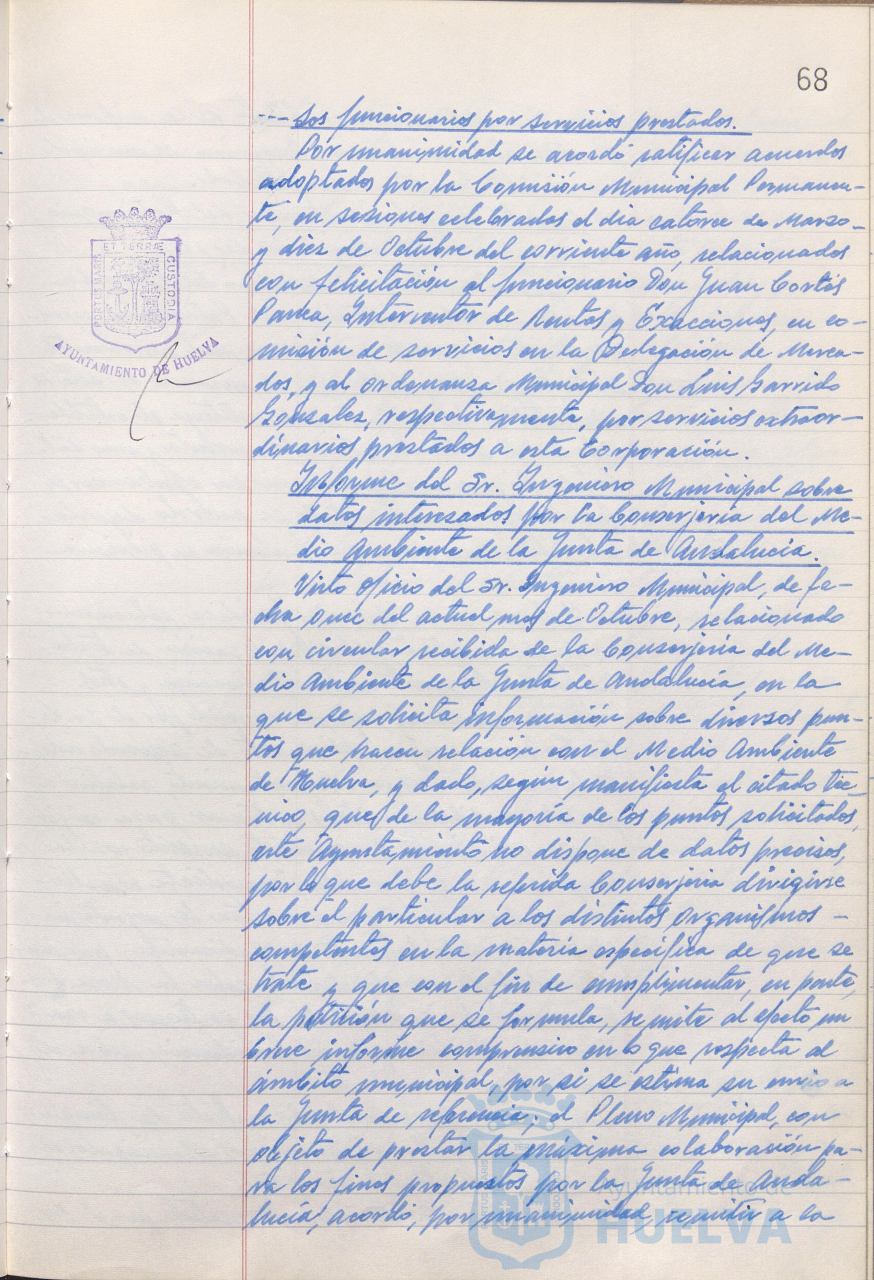 68
--- dos funcionarios por servicios prestados.
Por unanimidad se acordó ratificar acuerdos
adoptados por la Comisión Municipal Permanen-
te, en sesiones celebradas el día catorce de Marzo-
y diez de Octubre del corriente año, relacionados
con felicitación al funcionario Don Juan Cortés
Interventor de Rentas y Exacciones, en co-
misión de servicios en la Delegación de Merca-
dos, y al ordenanza Municipal Don Luis Garrido
Gonzalez, respectivamente, por servicios extraor-
dinarios prestados a esta Corporación.
Informe del Sr. Ingeniero Municipal sobre
datos interesados por la Conserjería del Me-
dio Ambiente de la Junta de Andalucía.
Visto oficio del Sr. Ingeniero Municipal, de fe-
cha once del actual mes de Octubre, relacionado
con circular recibida de la Conserjería del Me-
dio Ambiente de la Junta de Andalucía, en la
que se solicita información sobre diversos pun-
tos que hacen relación con el Medio Ambiente
de Huelva, y dado, según manifiesta el citado téc-
nico, que de la mayoría de los puntos solicitados,
este Ayuntamiento no dispone de datos precisos,
por lo que debe la referida Conserjería dirigirse
sobre el particular a los distintos organismos -
competentes en la materia específica de que se
trate y que con el fin de cumplimentar, en parte,
la petición que se formula, remite al efecto un
breve informe comprensivo en lo que respecta al
ámbito municipal, por si se estima su envío a
la Junta de referencia; el Pleno Municipal, con
objeto de prestar la máxima colaboración pa-
ra los fines propuestos por la Junta de Anda-
lucía, acordó, por unanimidad, remitir a la
PORTUS MARIS ET TERRÆ CUSTODIA
AYUNTAMIENTO DE HUELVA
Ayuntamiento de
HUELVA